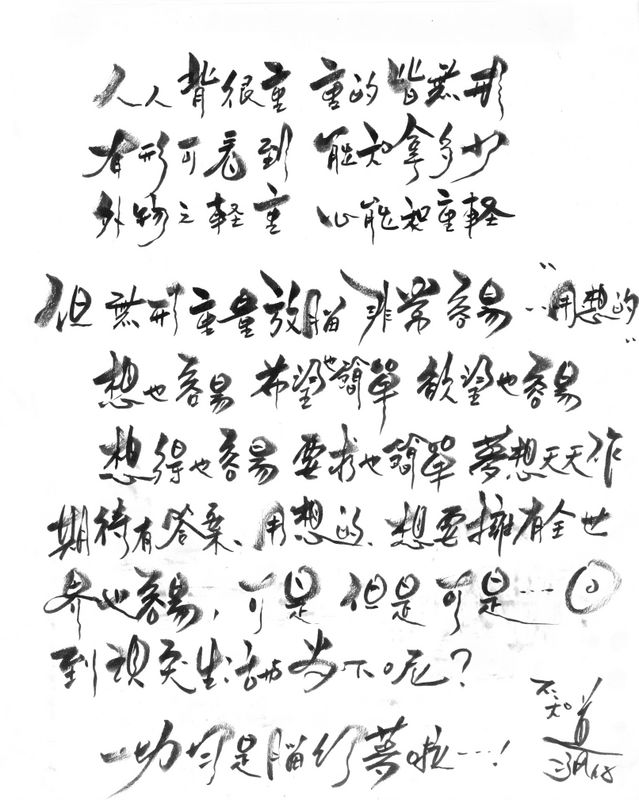 人人背很重 重的皆無形
有形可看到 能知拿多少
外物之輕重 心能知重輕
但無形重量放腦 非常容易…"用想的"
想也容易 希望也簡單 欲望也容易
想得也容易 要求也簡單 夢想天天作
期待有答案、用想的、想要擁有全世
界也容易,可是 但是 可是……回
到現實生活當下呢?
一切只是腦行菩啦……!
不知道